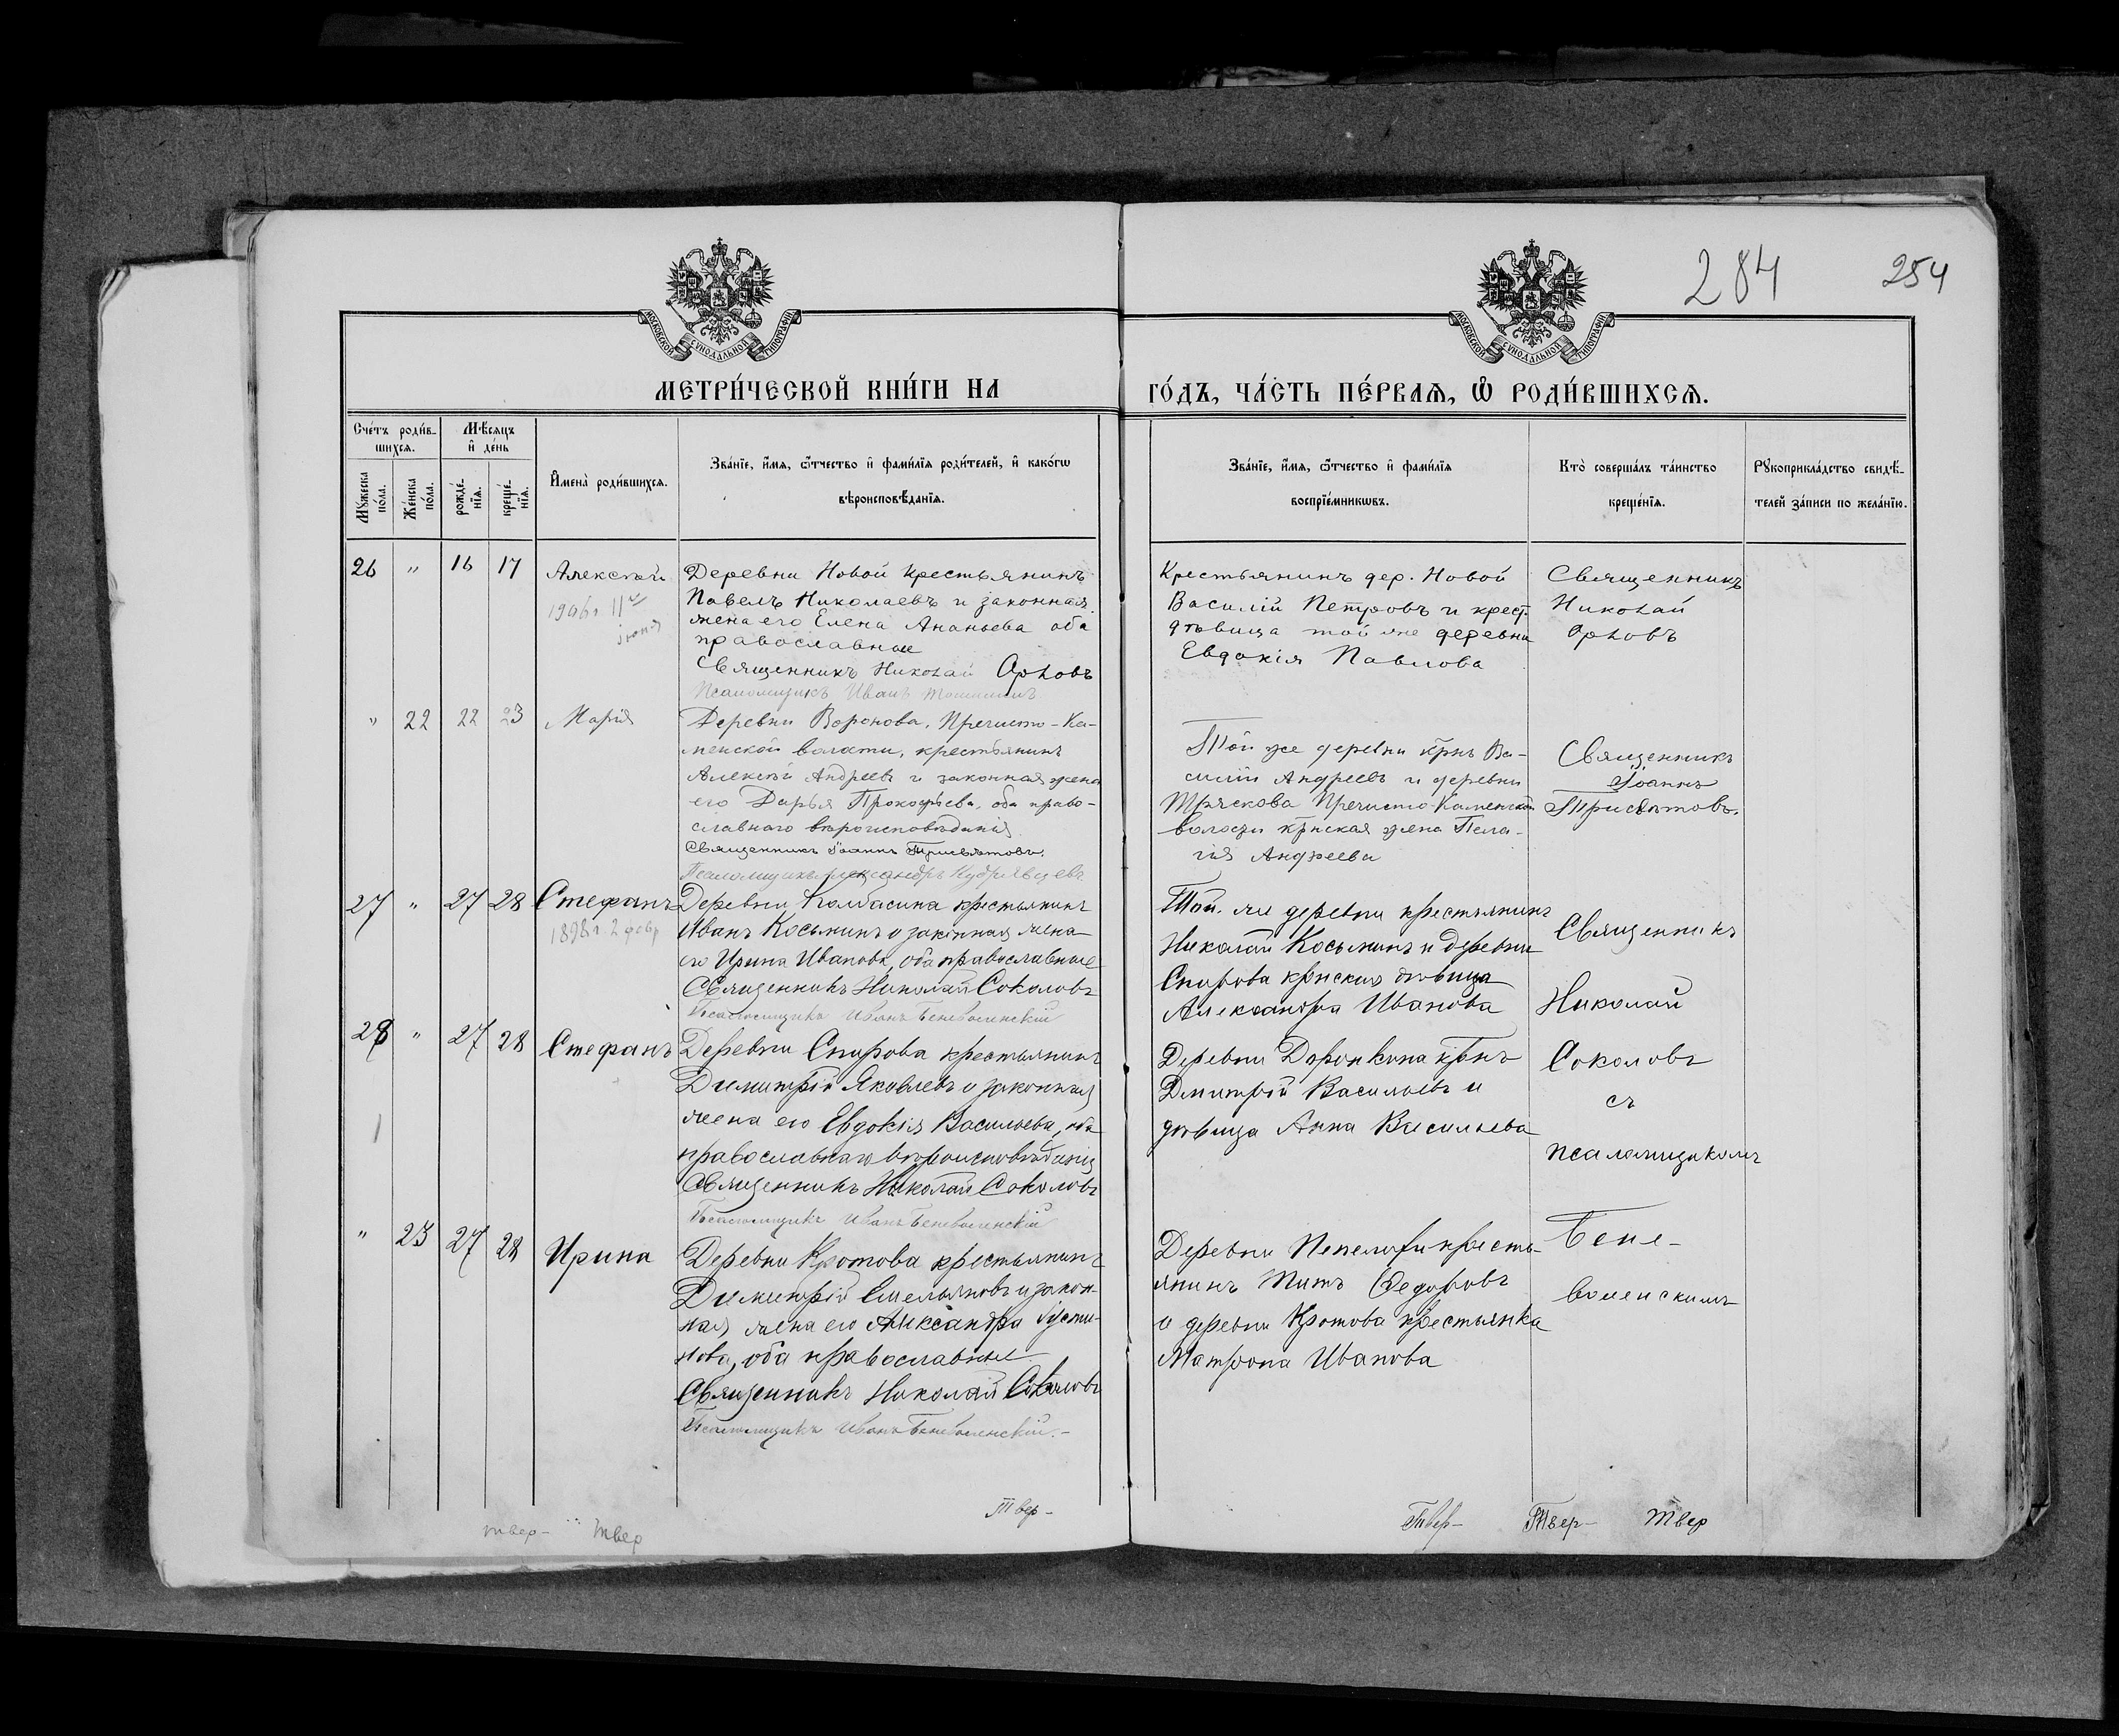 284
254
МОСКОВСКОЙ СѴНОДАЛЬНОЙ ТИПОГРАФІИ
МОСКОВСКОЙ СѴНОДАЛЬНОЙ ТИПОГРАФІИ
МЕТРИ́ЧЕСКОЙ КНИ́ГИ НА
ГО́ДЪ, ЧА́СТЬ ПЕ́РВАЯ, Ѽ РОДИ́ВШИХСЯ.
Сче́тъ роди́в-
шихся.
Мѣ́сяцъ
и де́нь
Му́жеска
по́ла.
Же́нска
по́ла.
рожде́-
нїя.
креще́-
нїя.
И҆мена̀ роди́вшихся.
Зва́нїе, и҆́мя, ѻ҆́тчество и҆ фами́лїя роди́телей, и҆ како́гѡ
вѣроисповѣ́данїя.
Зва́нїе, и҆́мя, ѻ҆́тчество и҆ фами́лїя
воспрїе́мникѡвъ.
Кто̀ соверша́лъ та́инство
креще́нїя.
Рꙋкоприкла́дство свидѣ́-
телей за́писи по жела́нїю.
26 " 16 17 Алексѣй
1906 г. 11го
іюня
Деревни Новой крестьянинъ
Павелъ Николаевъ и законная
жена его Елена Ананьева оба
православные
Священникъ Николай Орловъ
Псаломщикъ Иванъ
Крестьянинъ дер. Новой
Василій Петровъ и крест.
дѣвица той же деревни
Евдокія Павлова
Священникъ
Николай
Орловъ
" 22 22 23 Марія
Деревни Воронова, Пречисто-Ка-
менской волости, крестьянинъ
Алексѣй Андреевъ и законная жена
его Дарья Прокофьева, оба право-
славнаго вѣроисповѣданія
Священникъ Іоаннъ Трисвятовъ.
Псаломщикъ Александръ Кудрявцевъ
Той же деревни крнъ Ва-
силій Андреевъ и деревни
Тряскова Пречисто-Каменской
волости крнская жена Пела-
гія Андреева
Священникъ
Іоаннъ
Трисвятовъ.
27 " 27 28 Стефанъ
1898 г. 2 февр
Деревни Колбасина крестьянинъ
Иванъ Косьминъ и законная жена
его Ирина Иванова, оба православные
Священникъ Николай Соколовъ
Псаломщикъ Иванъ Беневоленскій
Той же деревни крестьянинъ
Николай Косьминъ и деревни
Спирова крнская дѣвица
Александра Иванова
Священникъ
Николай
28 " 27 28 Стефанъ
Деревни Спирова крестьянинъ
Димитрій Яковлевъ и законная
жена его Евдокія Васильева, оба
православнаго вѣроисповѣданія
Священникъ Николай Соколовъ
Псаломщикъ Иванъ Беневоленскій
Деревни Доронкина крнъ
Дмитрій Васильевъ и
дѣвица Анна Васильева
Соколовъ
съ
псаломщикомъ
" 23 27 28 Ирина
Деревни Кротова крестьянинъ
Димитрій Емельяновъ и закон-
ная жена его Александра Іусти-
нова, оба православные
Священникъ Николай Соколовъ
Псаломщикъ Иванъ Беневоленскій.-
Деревни кресть-
янинъ Титъ Ѳедоровъ
и деревни Кротова крестьянка
Матрона Иванова
Бене-
воленскимъ
твер- твер
Твер-
Твер- Твер- Твер